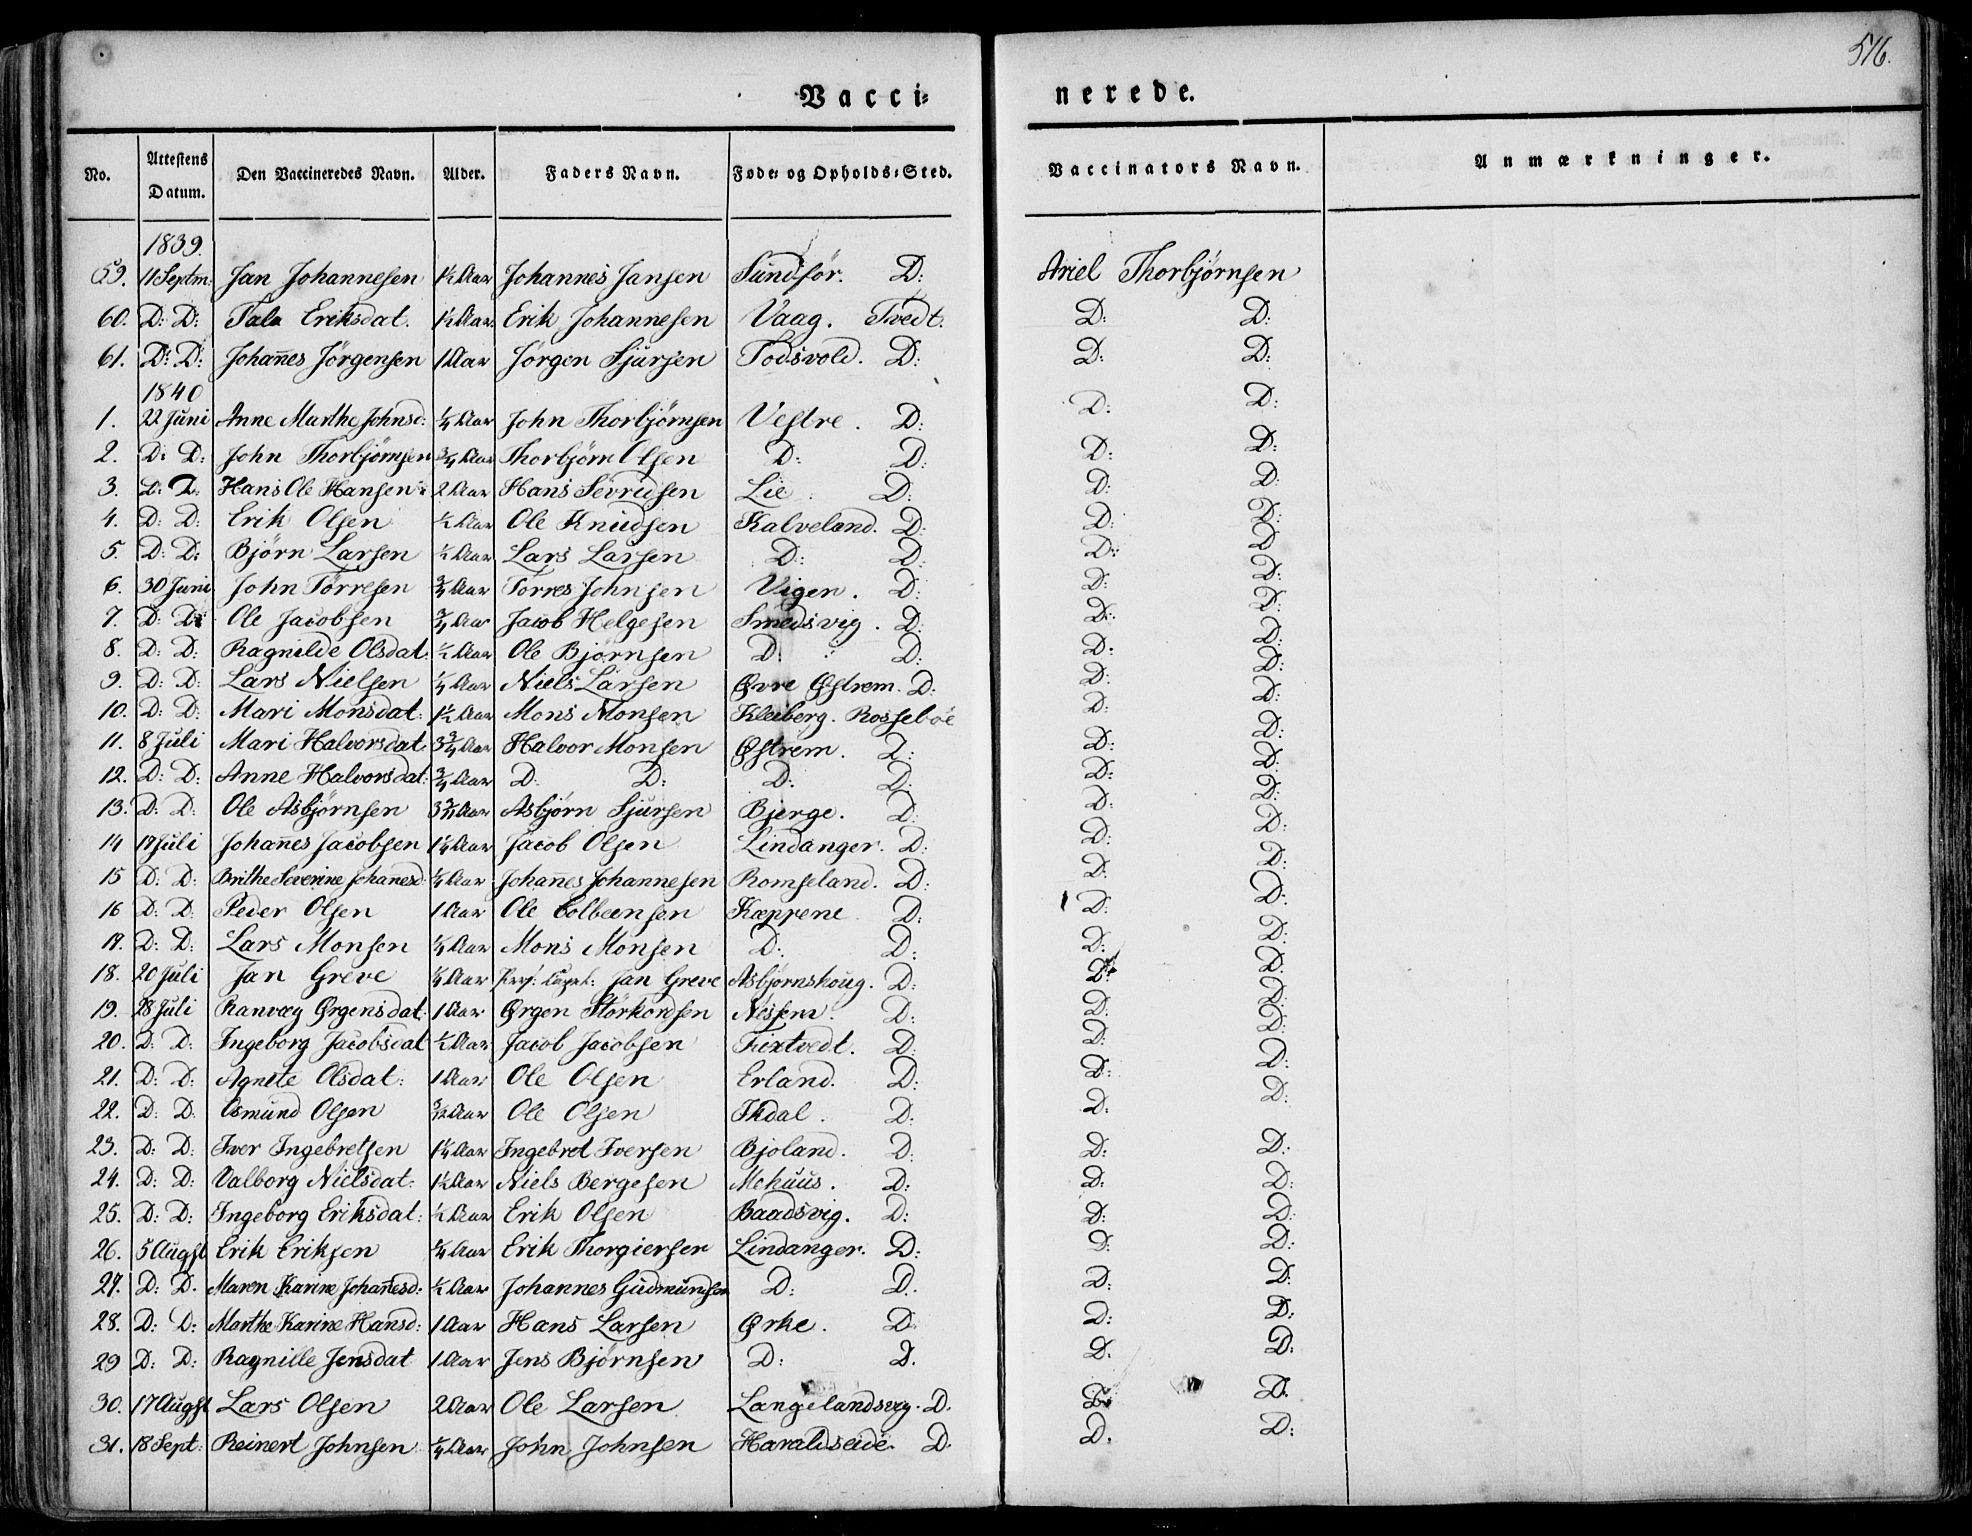 516.
Vacci=nerede.
No. Attestens Datum. Den Vaccineredes Navn. Alder. Faders Navn. Føde- og Opholds-Sted. Vaccinators Navn. Anmærkninger.
1839.
59. 11 Septm. Jan Johannesen 1½ Aar Johannes Jansen Sundfør. D: Ariel Thorbjørnsen
60. D: D: Tala Eriksdat. 1½ Aar Erik Johannesen Vaag. Tvedt. D: D:
61. D: D: Johan̄es Jörgensen 1 Aar Jörgen Sjursen Todsvold. D: D: D:
1840
1. 22 Juni Anne Marthe Johnsd: ¼ Aar John Thorbjørnsen Vestre. D: D: D:
2. D: D: John Thorbjørnsen ¾ Aar Thorbjørn Olsen D: D: D: D:
3. D: D: Hans Ole Hansen 2 Aar Hans Sevridsen Lie D: D: D:
4. D: D: Erik Olsen ½ Aar Ole Knudsen Kalveland. D: D: D:
5. D: D: Bjørn Larsen ½ Aar Lars Larsen D: D: D: D
6. 30 Juni John Törresen ¾ Aar Törres Johnsen Vigen. D: D: D:
7. D: D: Ole Jacobsen ¾ Aar Jacob Helgesen Smedsvig. D: D: D:
8. D: D: Ragnilde Olsdat: ½ Aar Ole Bjørnsen D: D: D. D:
9. D: D: Lars Nielsen ¼ Aar Niels Larsen Øvre Østrem. D: D: D:
10. D: D: Mari Monsdat: 1½ Aar Mons Monsen Kleiberg. Rossebøe D: D:
11. 8 Juli Mari Halvorsdat: 3¾ Aar Halvor Monsen Østrem. D: D: D:
12. D: D: Anne Halvorsdat: ¾ Aar D: D: D: D: D: D:
13. D: D: Ole Asbjørnsen 3¾ Aar Asbjørn Sjursen Bjerge. D: D: D:
14 17 Juli Johan̄es Jacobsen 1¼ Aar Jacob Olsen Lindanger. D: D: D:
15 D: D: Brithe Severine Johanesd: ¼ Aar Johan̄es Johannesen Romseland. D: D: D:
16 D: D: Peder Olsen 1 Aar Ole Colbeensen Kæppene D: D: D:
17. D: D: Lars Monsen ¼ Aar Mons Monsen D: D: D: D:
18. 20 Juli Jan Greve ¼ Aar Jan Greve Asbjørnshoug. D: D: D:
19. 28 Juli Ranvæg Ørgensdat: 1 Aar Ørgen Störkorsen Nessem. D: D: D:
20. D: D: Ingeborg Jacobsdat ½ Aar Jacob Jacobsen Fiextvedt. D: D: D:
21. D: D: Agnete Olsdat: 1 Aar Ole Olsen Erland. D: D: D:
22. D: D. Osmund Olsen Aar Ole Olsen Ikdal. D: D. D:
23. D: D: Iver Ingebretsen 1¼ Aar Ingebret Iversen Bjoland. D: D: D:
24. D: D: Valborg Nielsdat: 1½ Aar Niels Bergesen Mehuus. D: D: D:
25. D: D: Ingeborg Eriksdat: ½ Aar Erik Olsen Baadsvig. D: D: D:
26. 5 Augst Erik Eriksen ¼ Aar Erik Thorgiersen Lindanger. D: D: D:
27. D: D. Maren Karine Johan̄esd: ½ Aar Johannes Gudmundsen D: D. D: D:
28. D: D: Marthe Karine Hansd: 1 Aar Hans Larsen Ørke. D: D: D:
29 D: D: Ragnille Jensdat 1 Aar Jens Bjørnsen D: D. D. D:
30. 17 Augst Lars Olsen 2 Aar Ole Larsen Langelandsvig. D. D: D.
31. 18 Sept: Reinert Johnsen ¼ Aar John Johnsen Haraldseide. D. D. D: